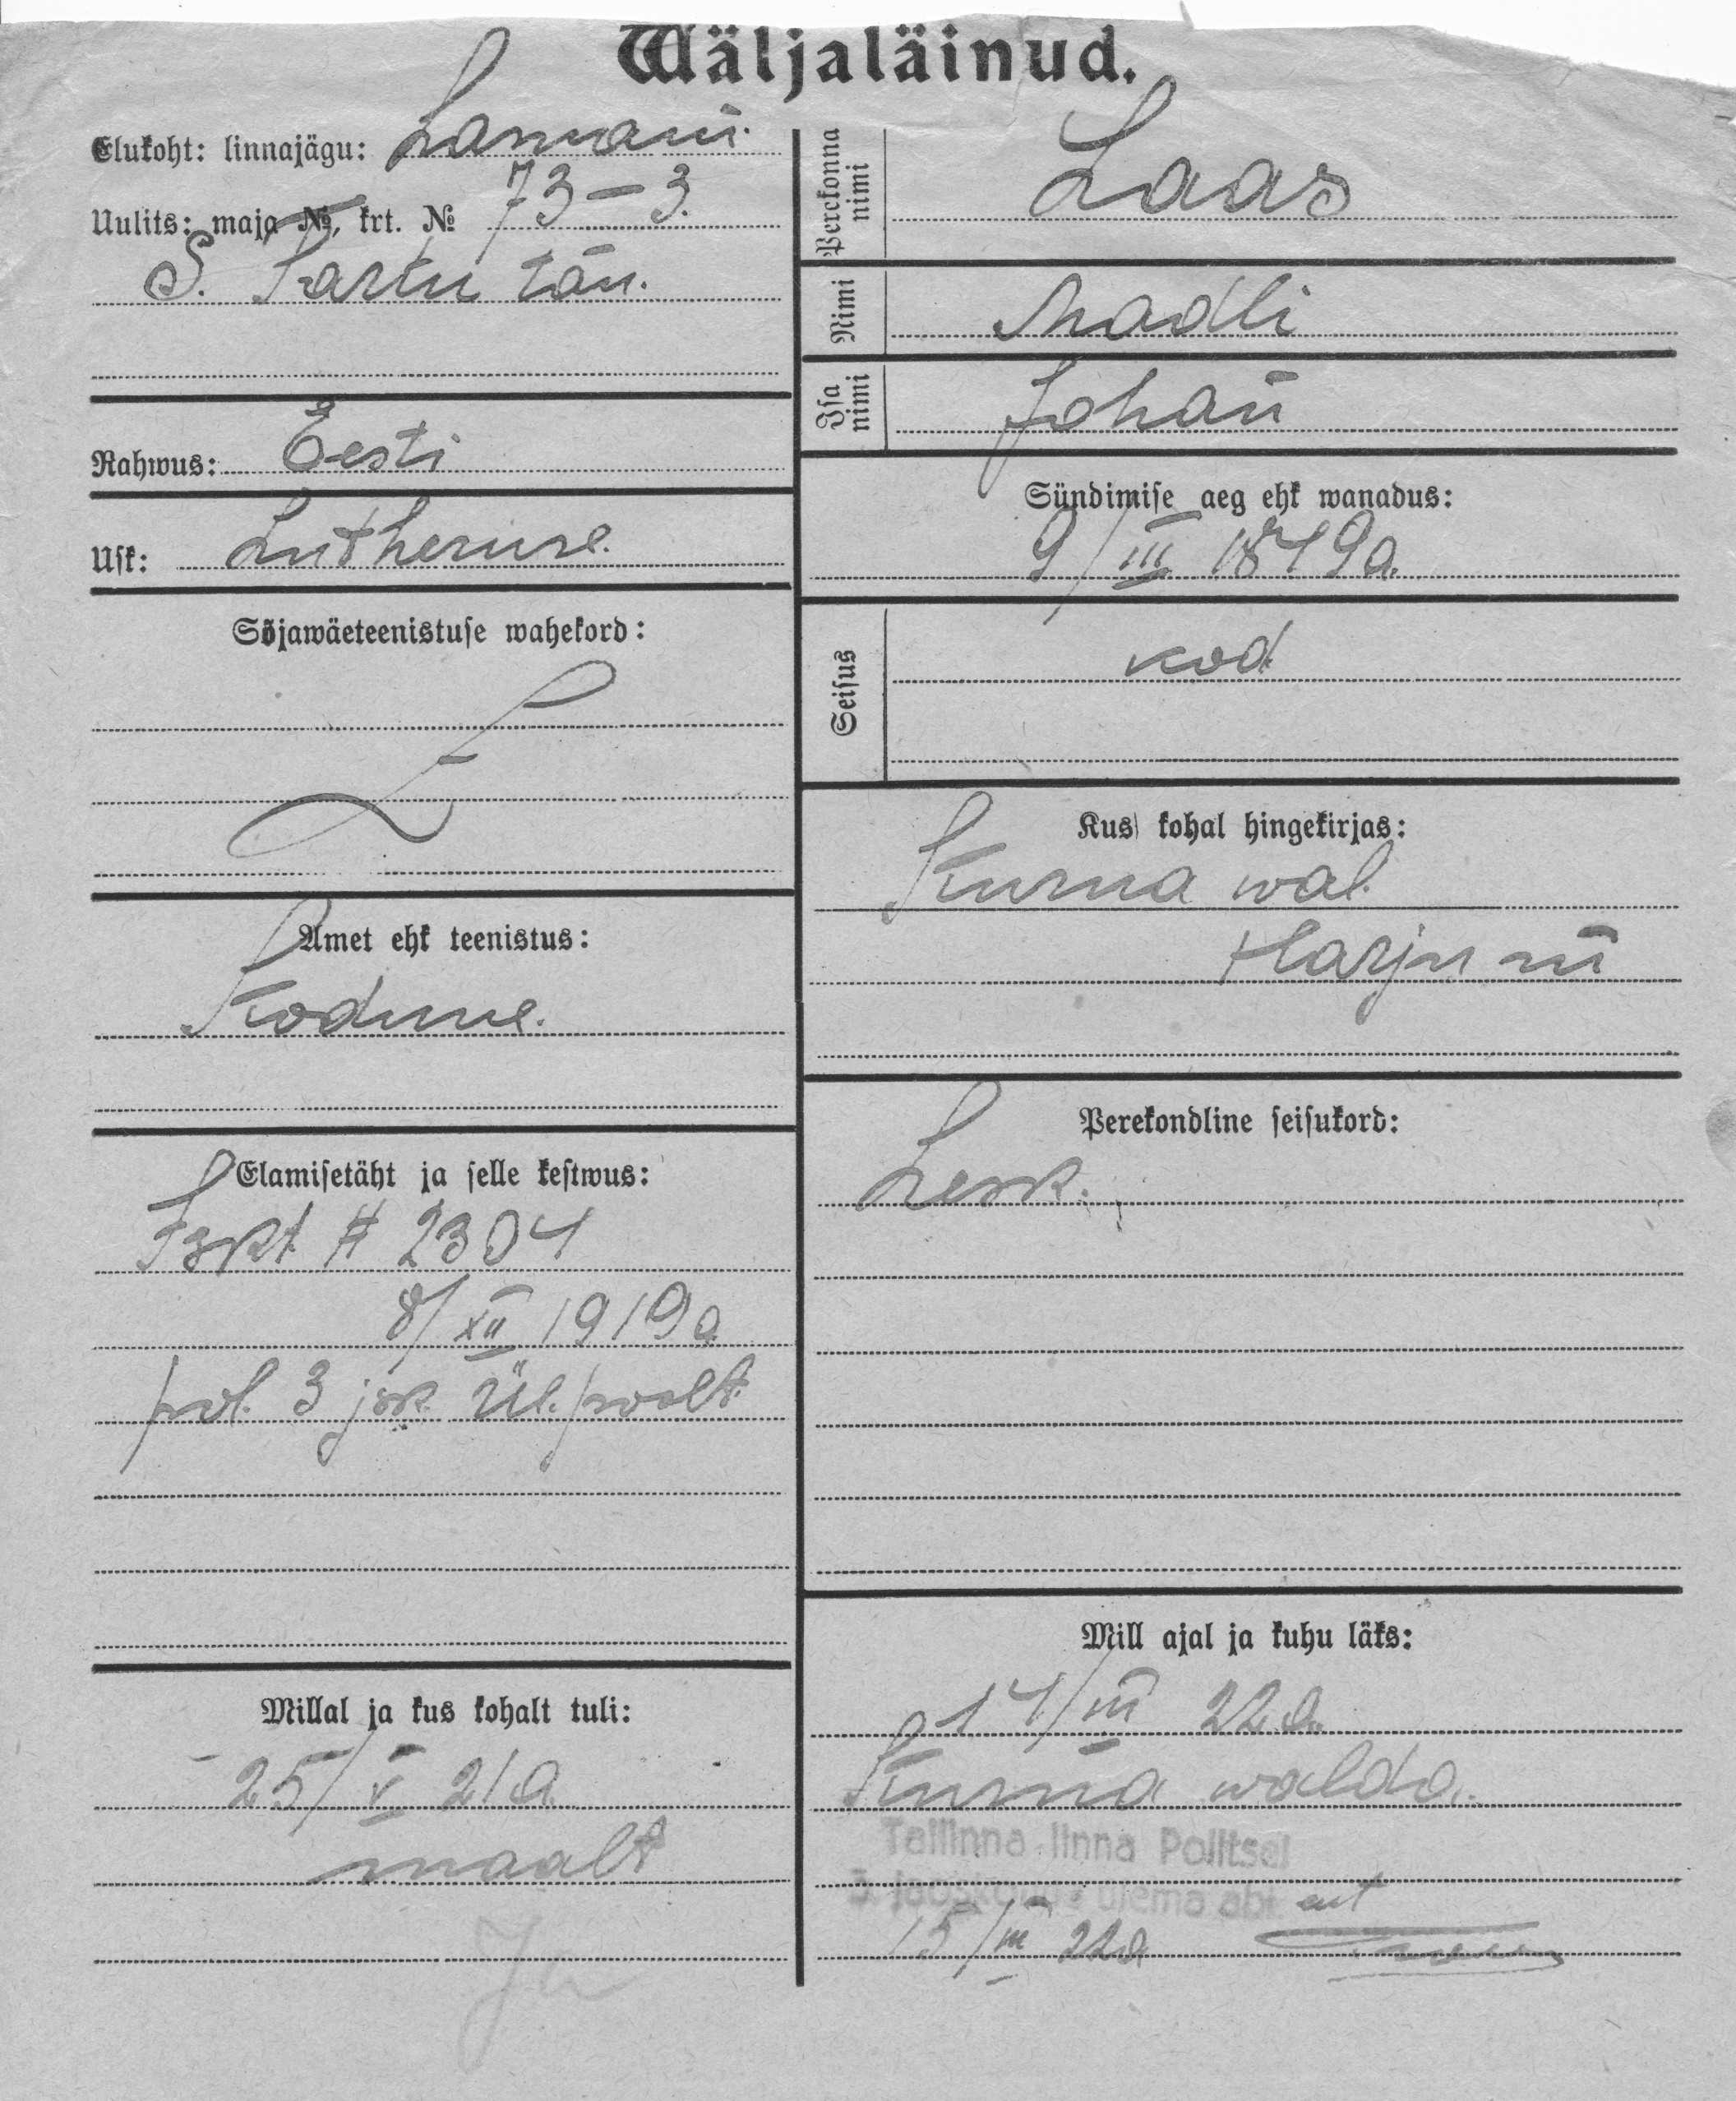 Wäljaläinud.
Elukoht: linnajägu: Lasnam.
Uulits: maja №, krt. № 73-3.
S. Tartu tän.
Rahwus: Eesti
Usk: Lutheruse.
Sõjawäeteenistuse wahekord:
Amet ehk teenistus:
Kodune.
Elamisetäht ja selle kestwus:
# 2304
8/XII 1919a
pol. 3 jsk. Ül. poolt.
Millal ja kus kohalt tuli:
25/V 21a.
maalt
Perekonna nimi
Laas
Nimi
Madli
Isa nimi
Johan
Sündimise aeg ehk wanadus:
9/III 1849a.
Seisus
kod.
Kus kohal hingekirjas:
Kurna wal.
Harju m
Perekondline seisukord:
Lesk.
Mill ajal ja kuhu läks:
14/III 22a.
Kurna walda.
Tallinna linna Politsei
3. jaoskonna ülema abi
15/III 22a